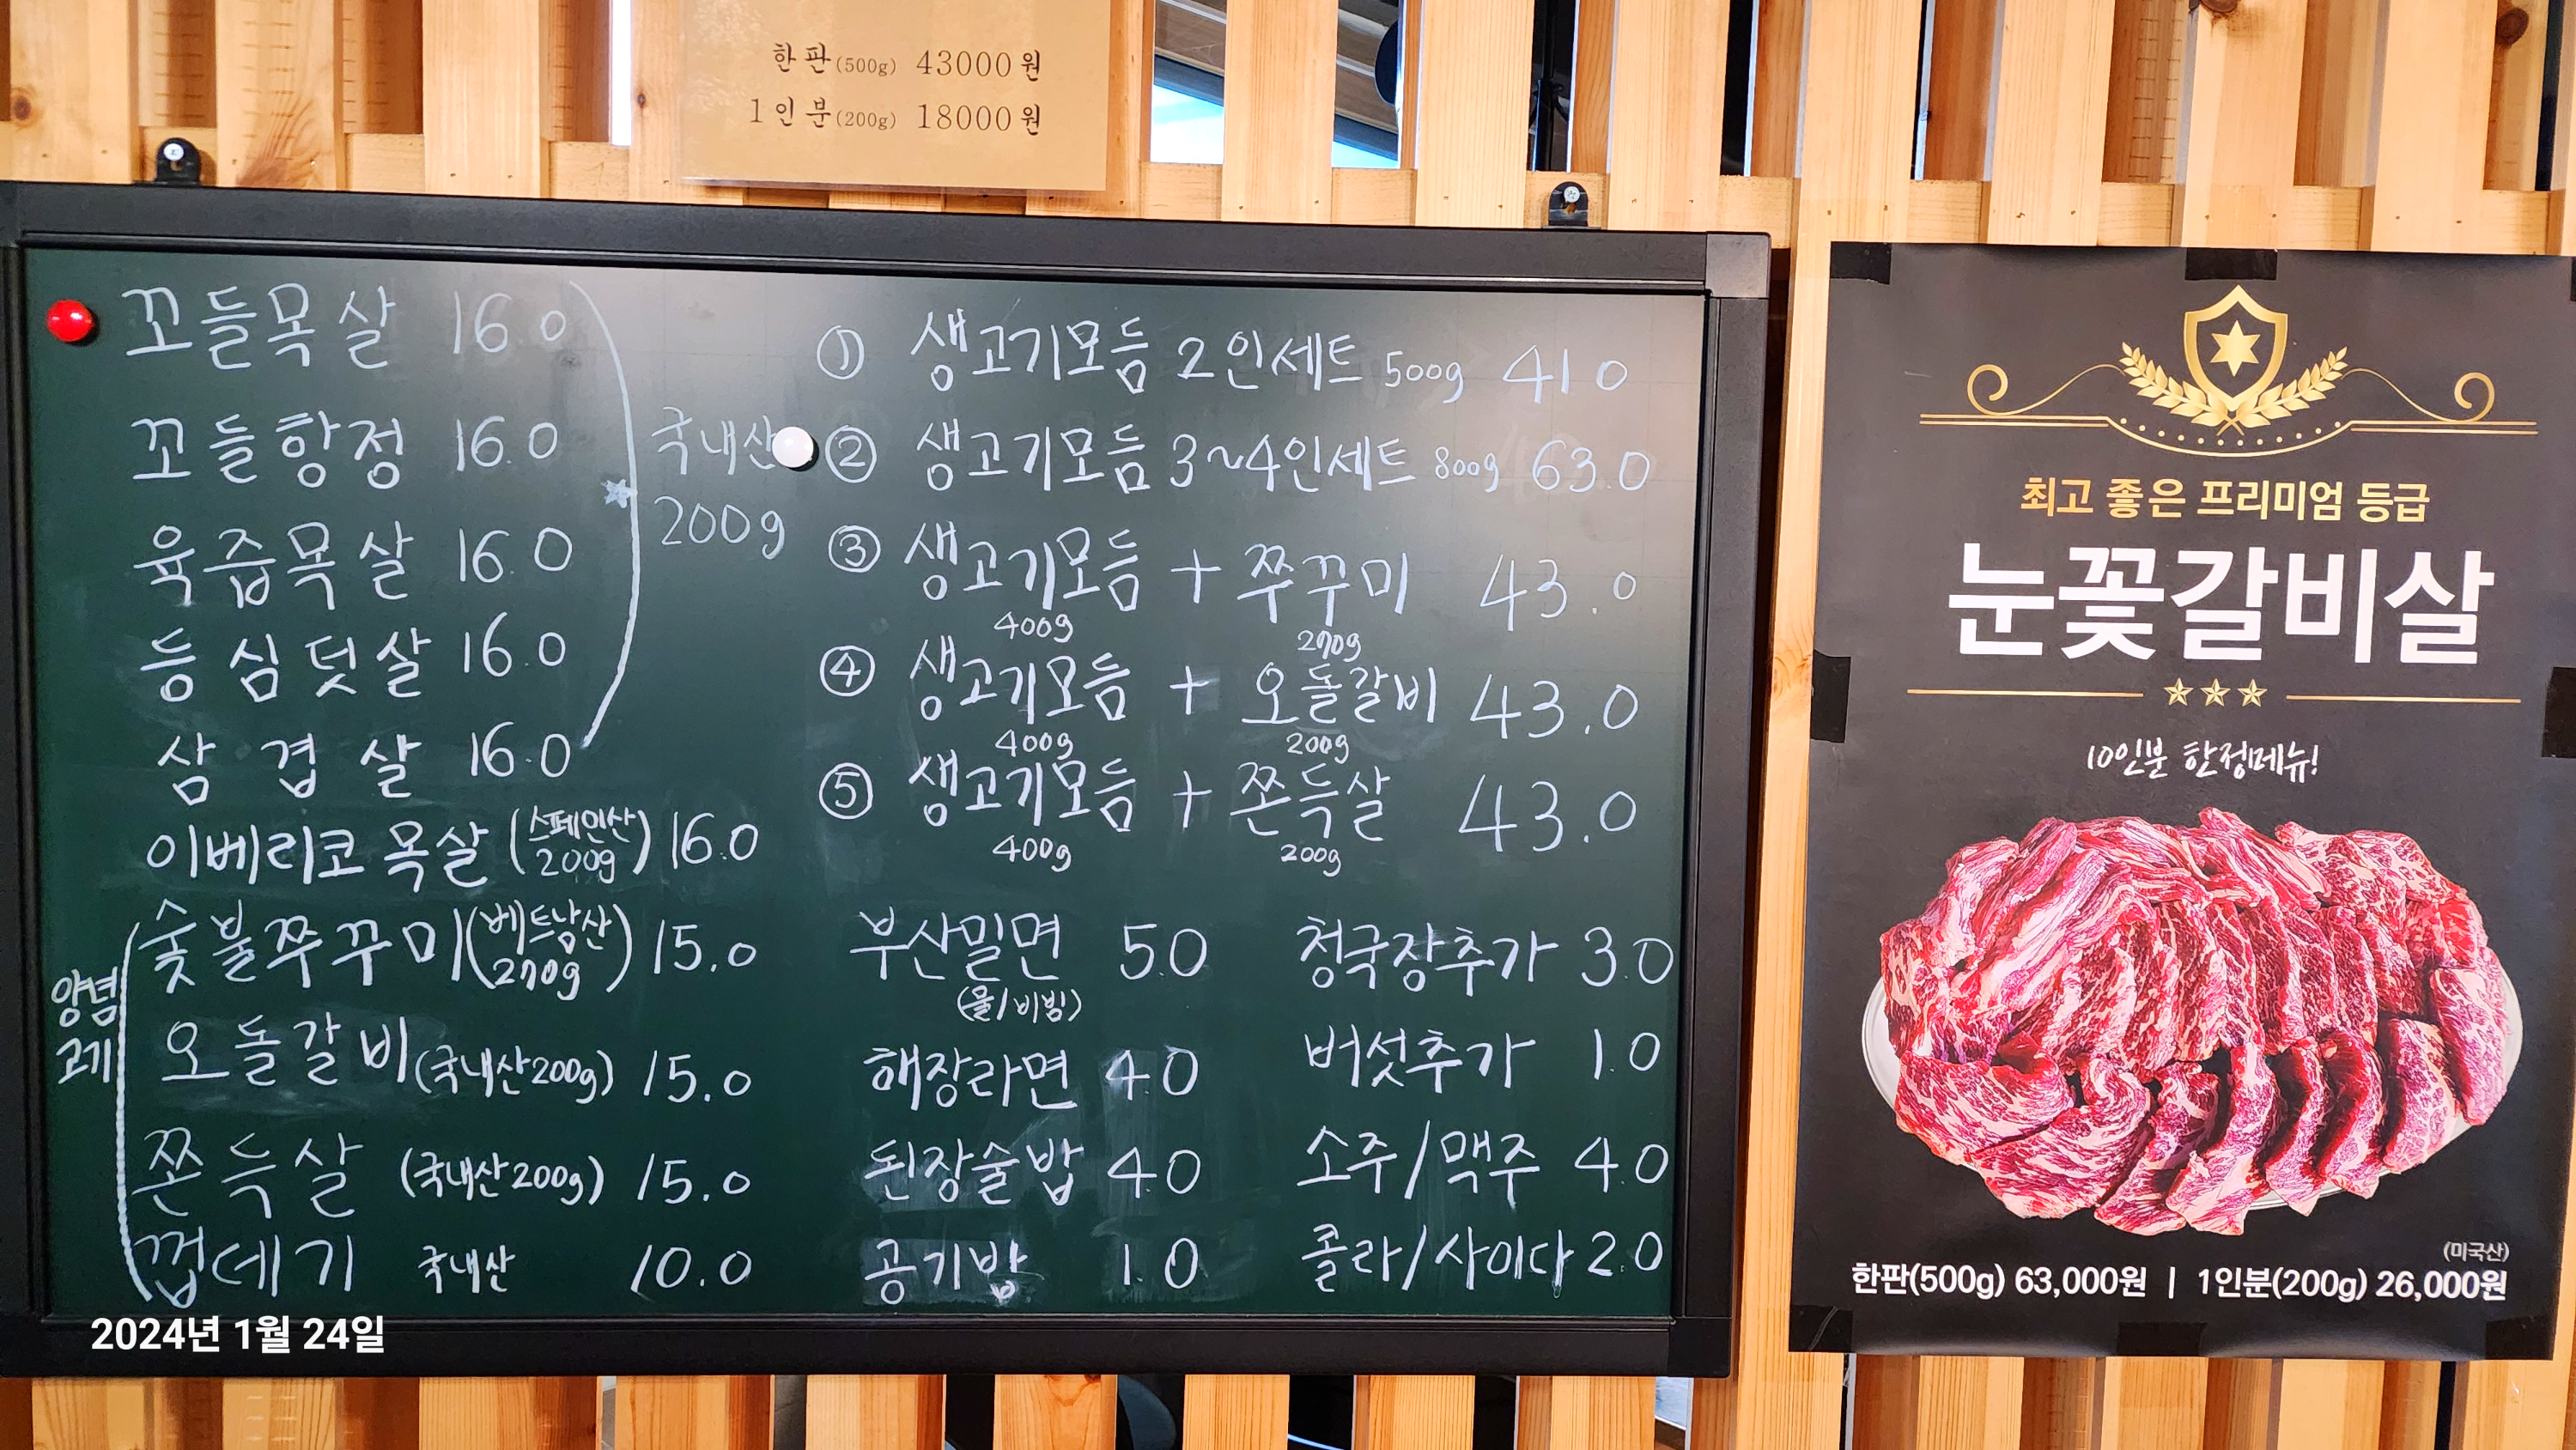 한판(500g) 43000원
1인분(200g) 18000원
꼬들목살 16.0
꼬들항정 16.0
육즙목살 16.0
등심덧살 16.0
삼겹살 16.0
국내산
200g
이베리코 목살 (스페인산 200g) 16.0
양념
고기
숯불쭈꾸미 (베트남산 270g) 15.0
오돌갈비 (국내산 200g) 15.0
쫀득살 (국내산 200g) 15.0
껍데기 국내산 10.0
① 생고기모듬 2인세트 500g 41.0
② 생고기모듬 3~4인세트 800g 63.0
③ 생고기모듬 + 쭈꾸미 43.0
400g 270g
④ 생고기모듬 + 오돌갈비 43.0
400g 200g
⑤ 생고기모듬 + 쫀득살 43.0
400g 200g
부산밀면 5.0
(물/비빔)
해장라면 4.0
된장술밥 4.0
공기밥 1.0
청국장추가 3.0
버섯추가 1.0
소주/맥주 4.0
콜라/사이다 2.0
최고 좋은 프리미엄 등급
눈꽃갈비살
10인분 한정메뉴!
(미국산)
한판(500g) 63,000원 | 1인분(200g) 26,000원
2024년 1월 24일